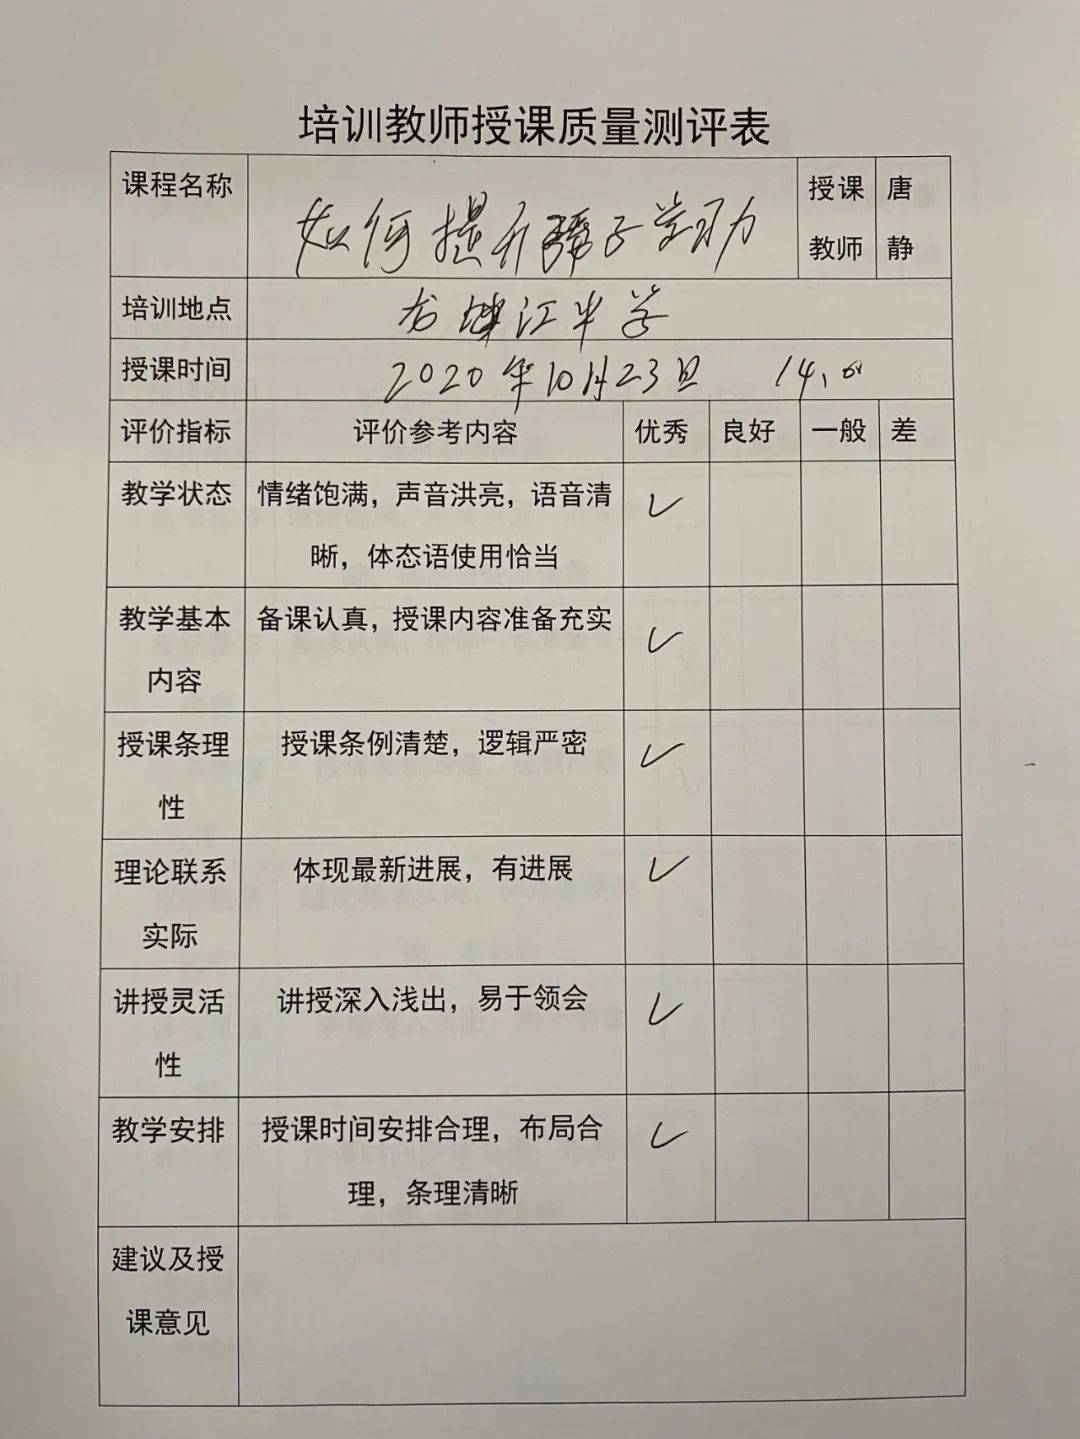 培训教师授课质量测评表
课程名称 如何提升孩子学习力 授课教师 唐静
培训地点 江中学
授课时间 2020年10月23日 14:00
评价指标 评价参考内容 优秀 良好 一般 差
教学状态 情绪饱满，声音洪亮，语音清
晰，体态语使用恰当 ✓
教学基本
内容 备课认真，授课内容准备充实 ✓
授课条理
性 授课条例清楚，逻辑严密 ✓
理论联系
实际 体现最新进展，有进展 ✓
讲授灵活
性 讲授深入浅出，易于领会 ✓
教学安排 授课时间安排合理，布局合
理，条理清晰 ✓
建议及授
课意见